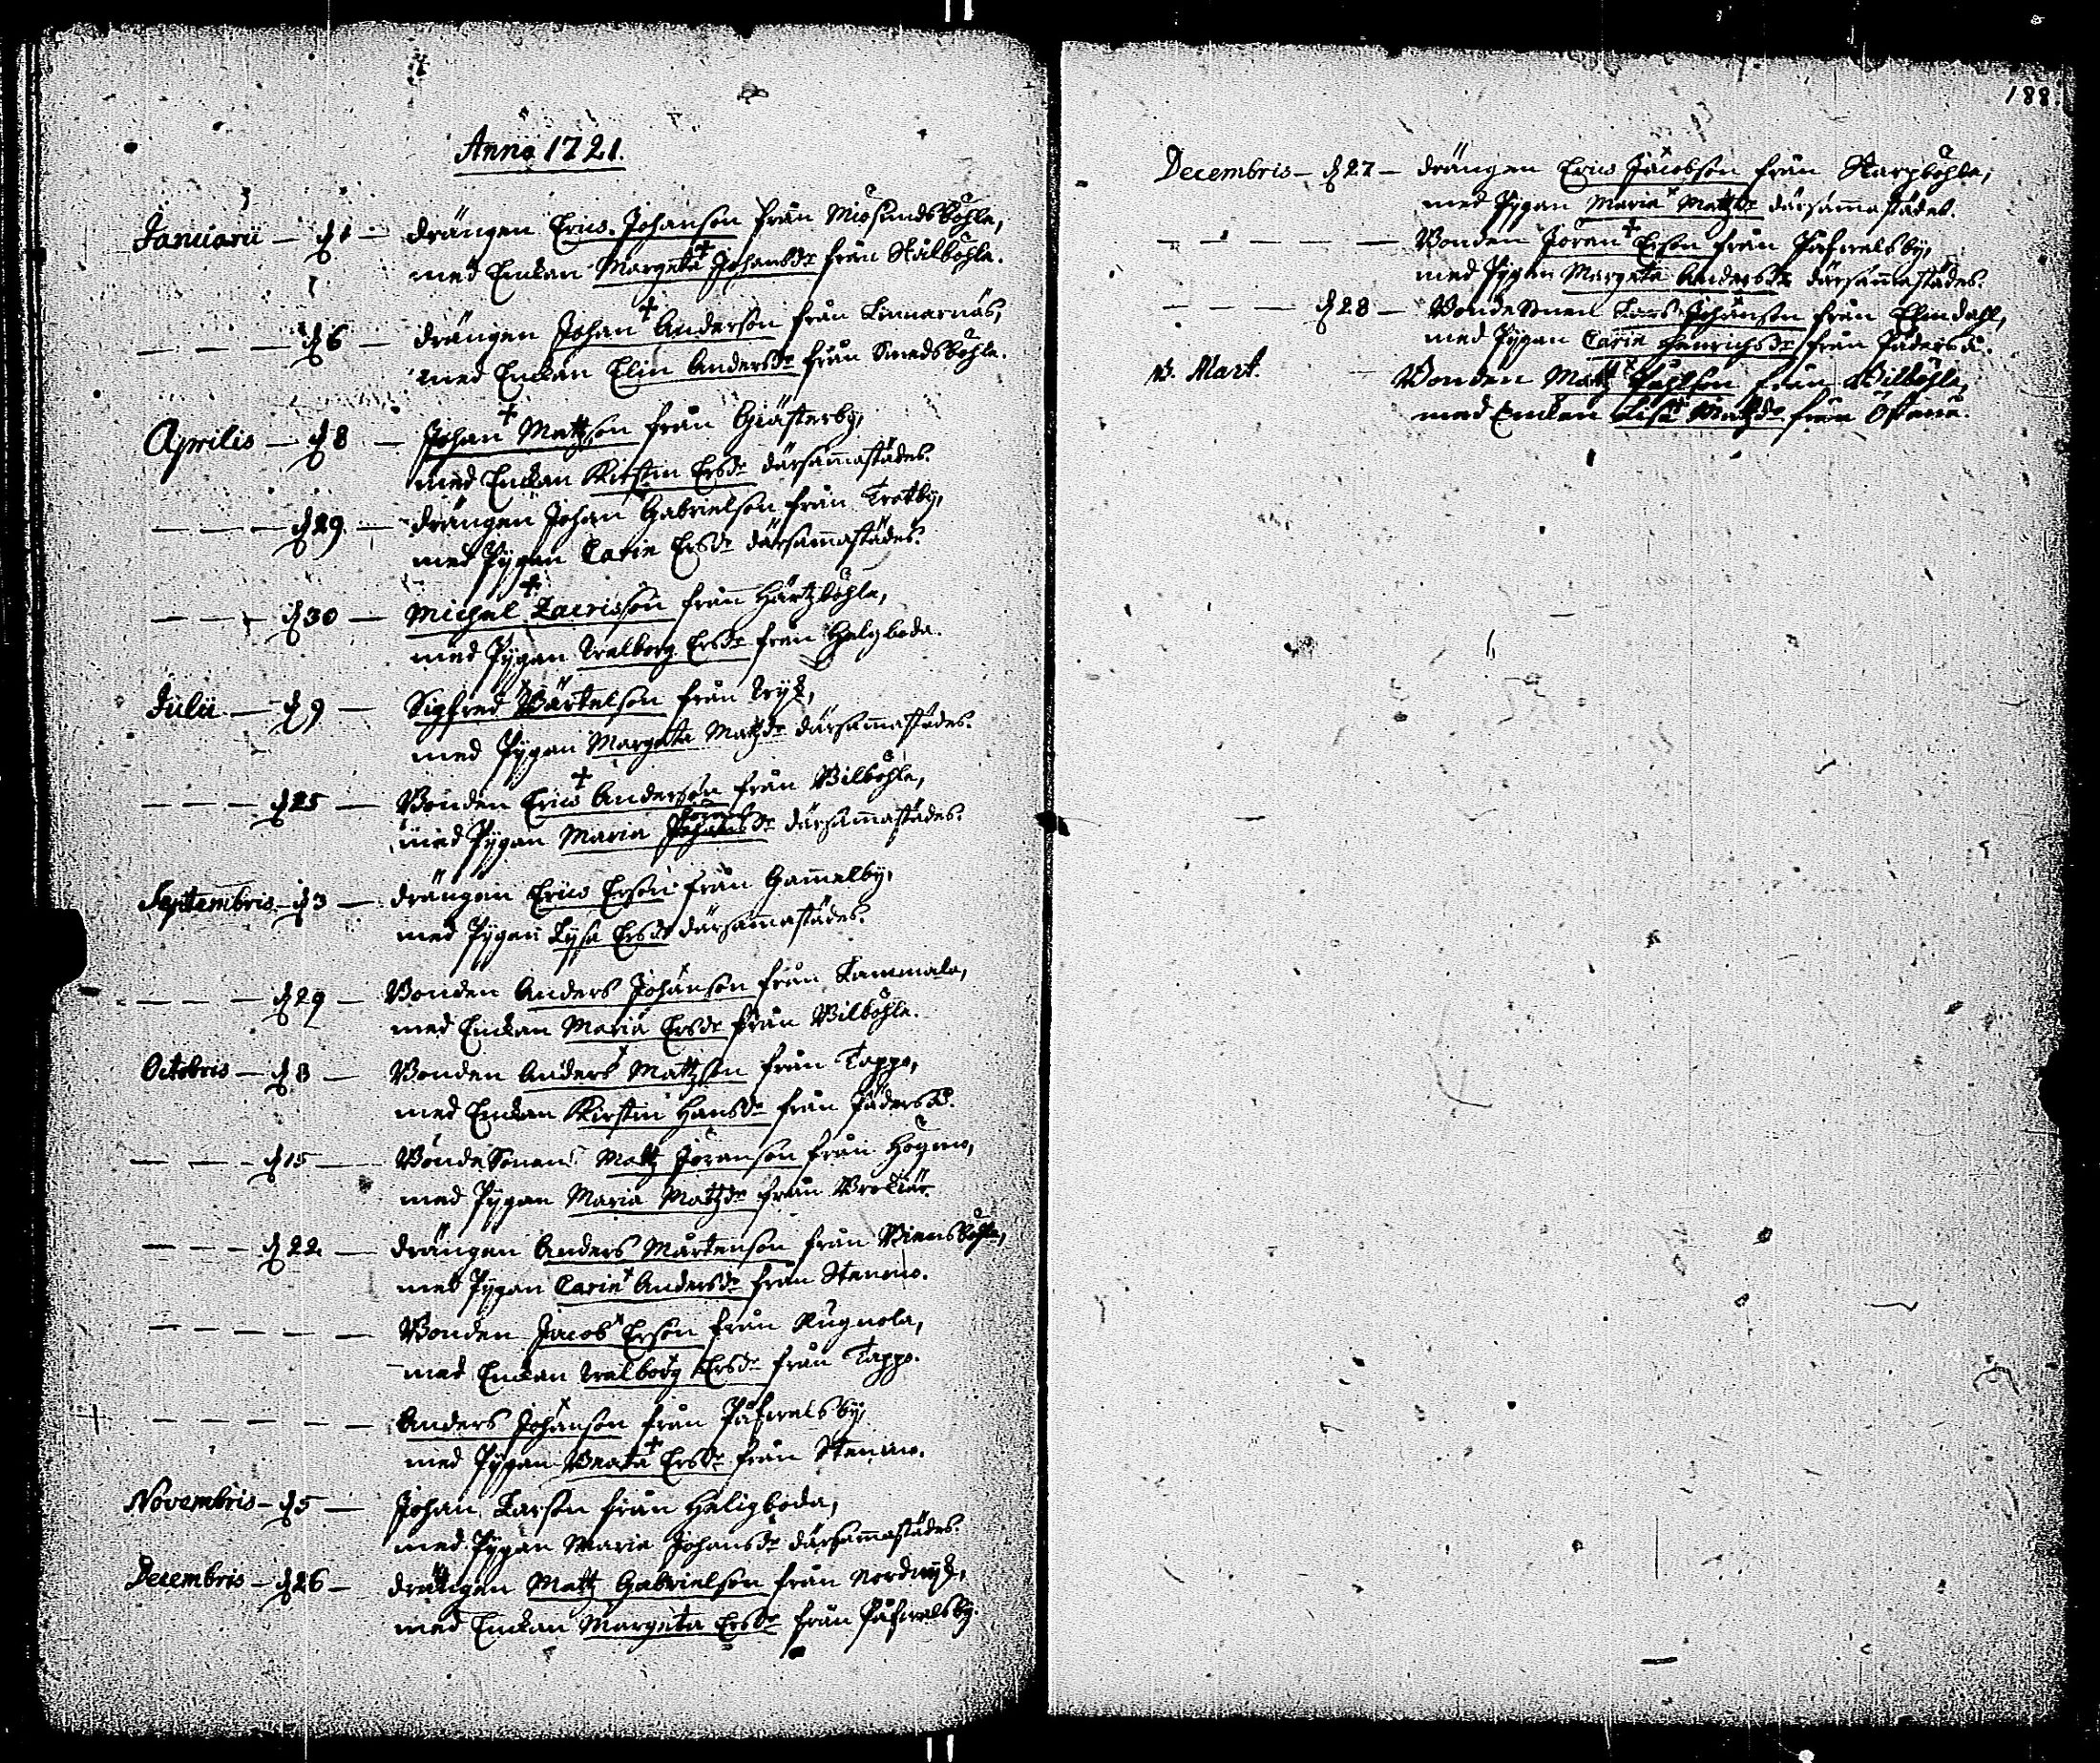 Anno 1721.
Januarii — d 1 — drängen Ericus Johanson från Miösundsböhle,
med Enckan Margeta Johansdr från Stålböhle.
— — — d 6 — drängen Johan Anderson från Linnarnäs,
med Enckan Elin Andersdr från Smedsböhle.
Aprilis — d 8 — Johan Mattzson från Giästerby,
med Enckan Kirstin Ersdr därsammastädes.
— — — d 29. — drängen Johan Gabrielson från Trotby,
med Pygan Carin Ersdr därsammastädes.
— — — d 30 — Michel Zacrisson från Härtzböhle,
med Pygan Walborg Ersdr från Helgboda.
Julii — d 9 — Sigfred Bärtelson från
med Pygan Margeta Matzdr därsammastädes.
— — — d 25 — Bonden Ericus Anderson från Wilböhle,
med Pygan Maria därsammastädes.
Septembris — d 3 — drängen Ericus Erson från Gammelby,
med Pygan Lysa Ersdr därsammastädes.
— — — d 29 — Bonden Anders Johanson från Lammala,
med Enckan Maria Ersdr från Wilböhle.
Octobris — d 8 — Bonden Anders Mattzson från Tappo,
med Enckan Kirstin Hansdr från Päderså.
— — — d 15 — BondeSonen Mattz Jöranson från Högmo,
med Pygan Maria Matzdr från
— — — d 22 — drängen Anders Mårtenson från Wiensböhle,
med Pygan Carin Andersdr från Stenmo.
— — — — — Bonden Jacob Erson från Rugnola,
med Enckan Walborg Ersdr från Tappo.
— — — — — Anders Johanson från Påfwelsby,
med Pygan Beata Ersdr från Stenmo.
Novembris — d 5 — Johan Larson från Heligboda,
med Pygan Maria Johansdr därsammastädes.
Decembris — d 26 — drängen Mattz Gabrielson från Nordwyk,
med Enckan Margeta Ersdr från Påfwelsby.
188.
Decembris — d 27 — drängen Ericus Jacobson från Skarpböhle,
med Pygan Maria Matzdr därsammastädes.
— — — — — Bonden Jöran Erson från Påfwelsby,
med Pygan Margeta Andersdr därsammastädes.
— — — d 28 — BondeSonen Lars Johanson från Elmdahl,
med Pygan Carin Henrichsdr från Päderså.
d. Mart. Bonden Mattz Påhlson från Wilböhle,
med Enckan Lisa Matzdr från Östanå.